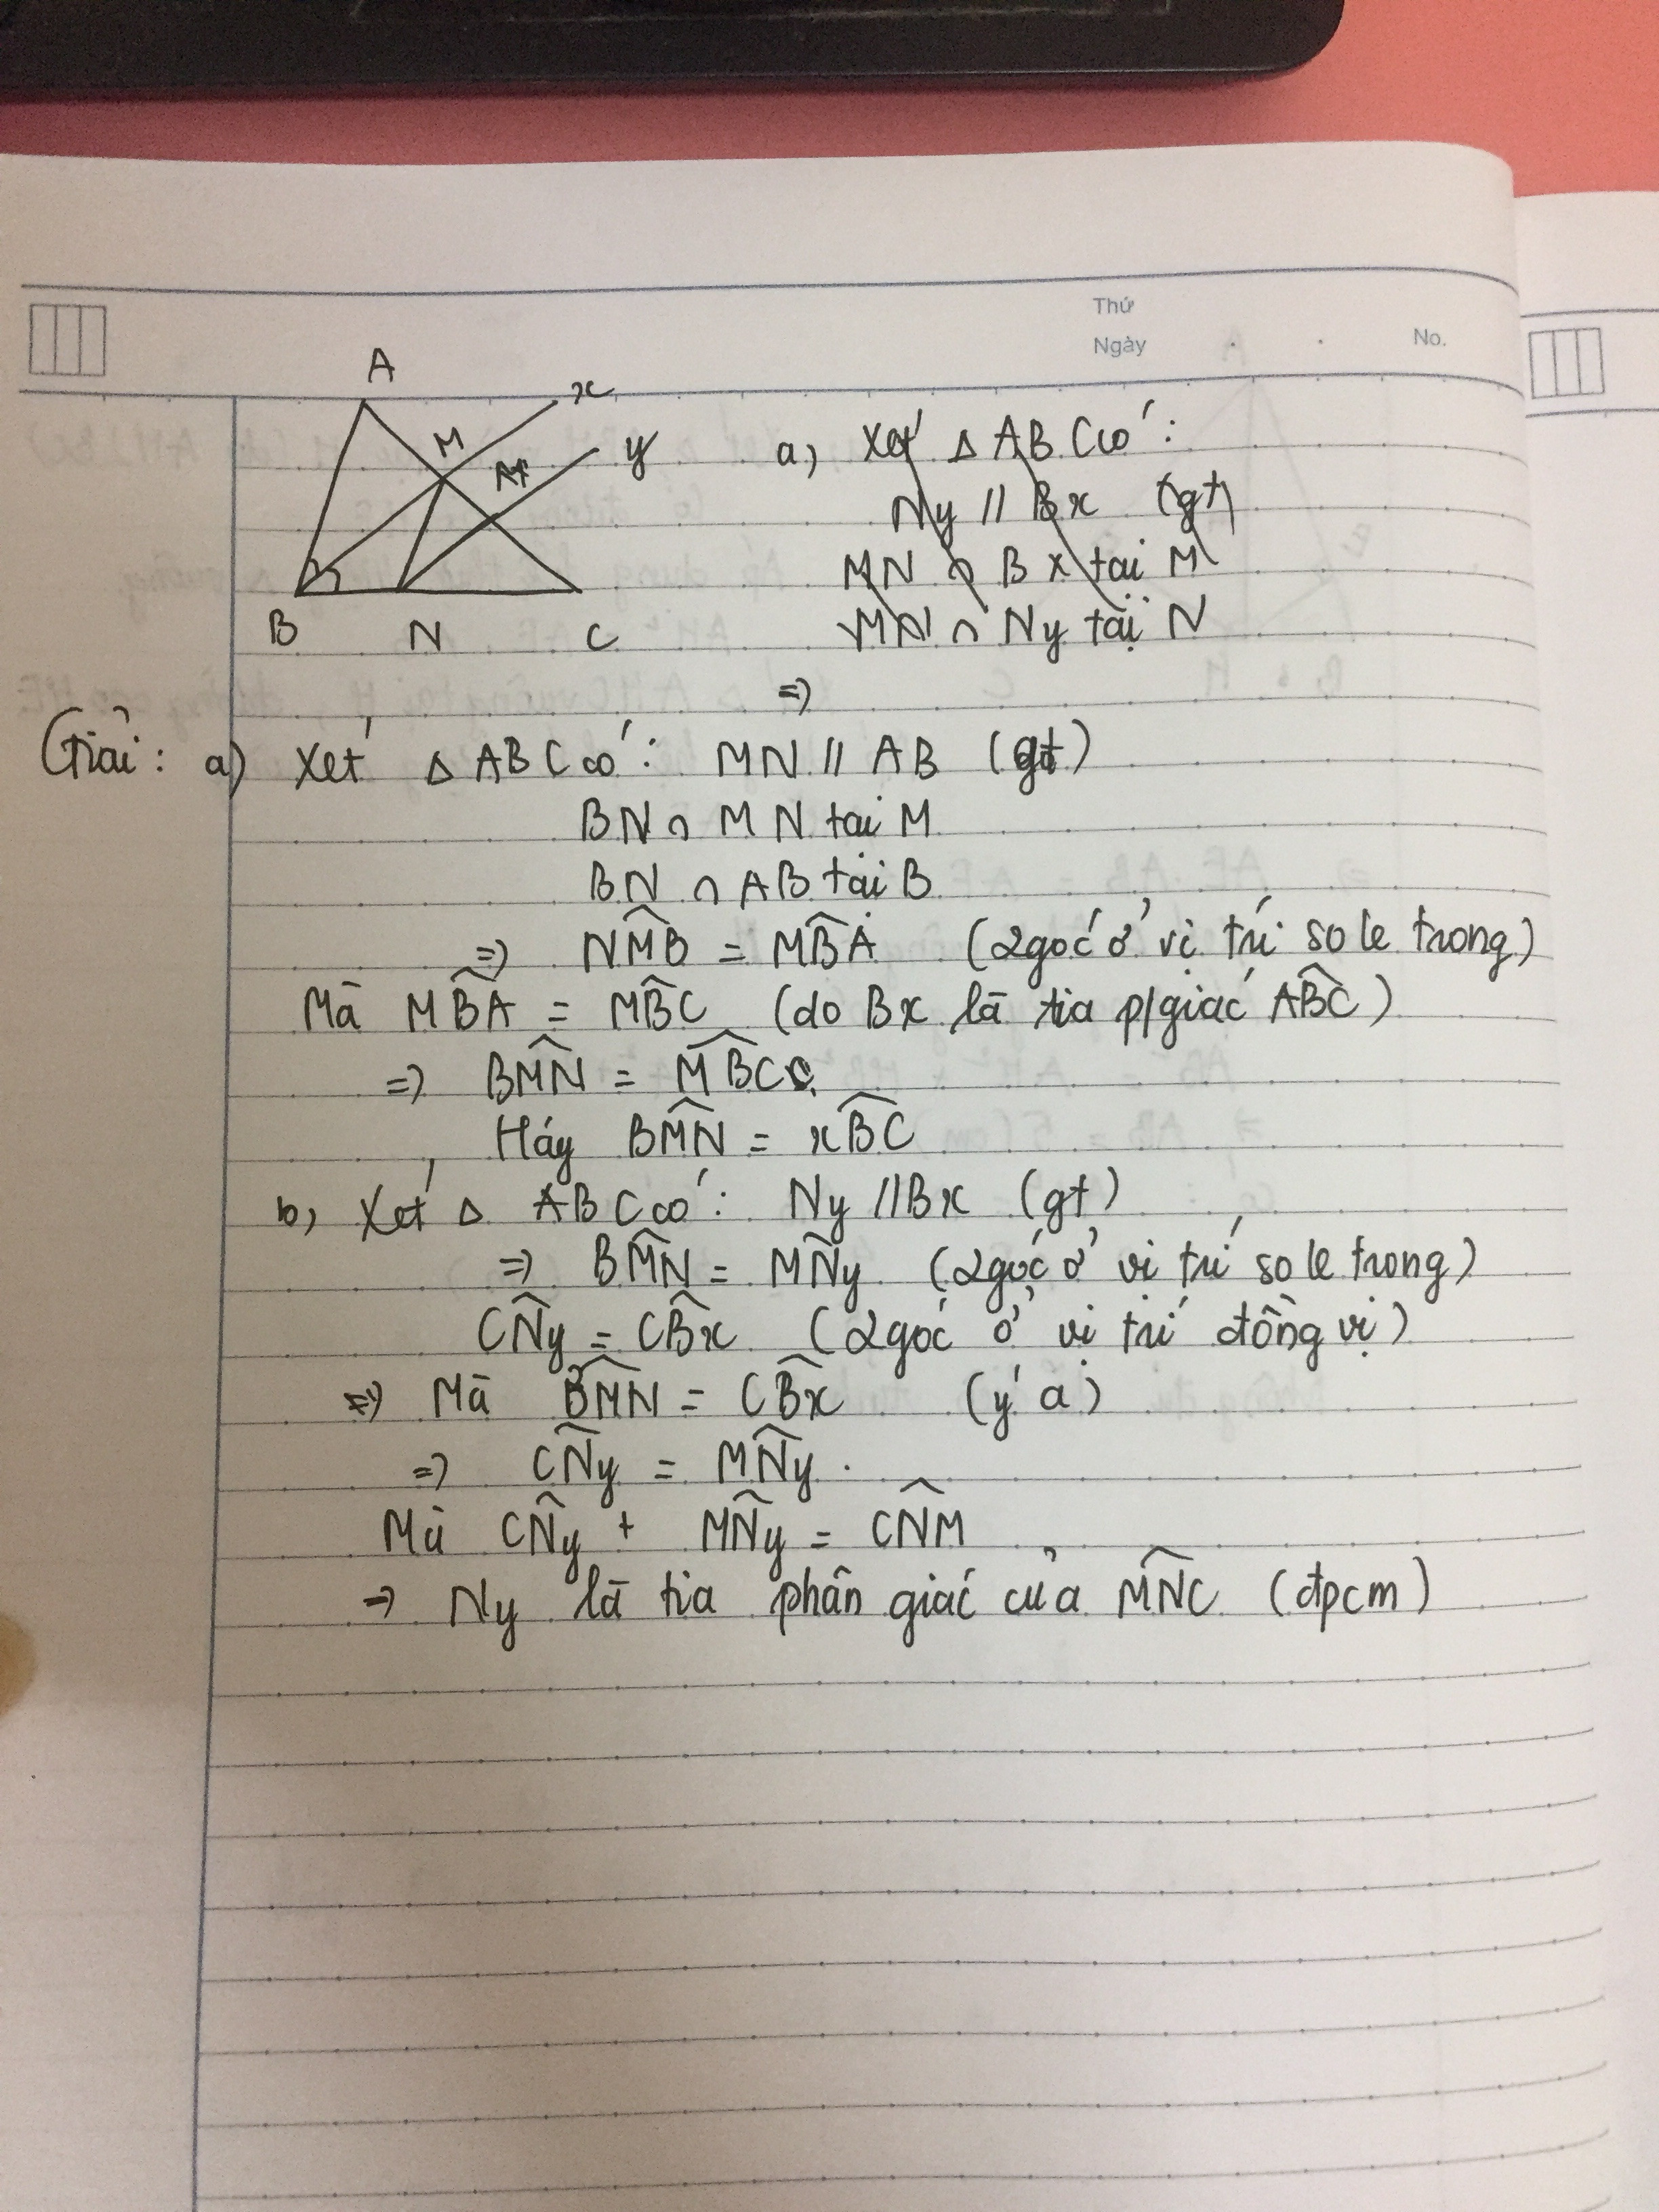 Thứ
Ngày
No.
A
x
M
y
B
N
C
a) Xét △ ABC có:
Ny // Bx (gt)
MN ∩ Bx tại M
MN ∩ Ny tại N
=>
Giải: a) Xét △ ABC có: MN // AB (gt)
BN ∩ MN tại M
BN ∩ AB tại B
=> NM̂B = MB̂A (2 góc ở vị trí so le trong)
Mà MB̂A = MB̂C (do Bx là tia p/giác AB̂C)
=> BM̂N = MB̂C
Háy BM̂N = xB̂C
b, Xét △ ABC có: Ny // Bx (gt)
=> BM̂N = MN̂y (2 góc ở vị trí so le trong)
CN̂y = CB̂x (2 góc ở vị trí đồng vị)
=> Mà BM̂N = CB̂x (ý a)
=> CN̂y = MN̂y.
Mà CN̂y + MN̂y = CN̂M
=> Ny là tia phân giác của MN̂C (đpcm)